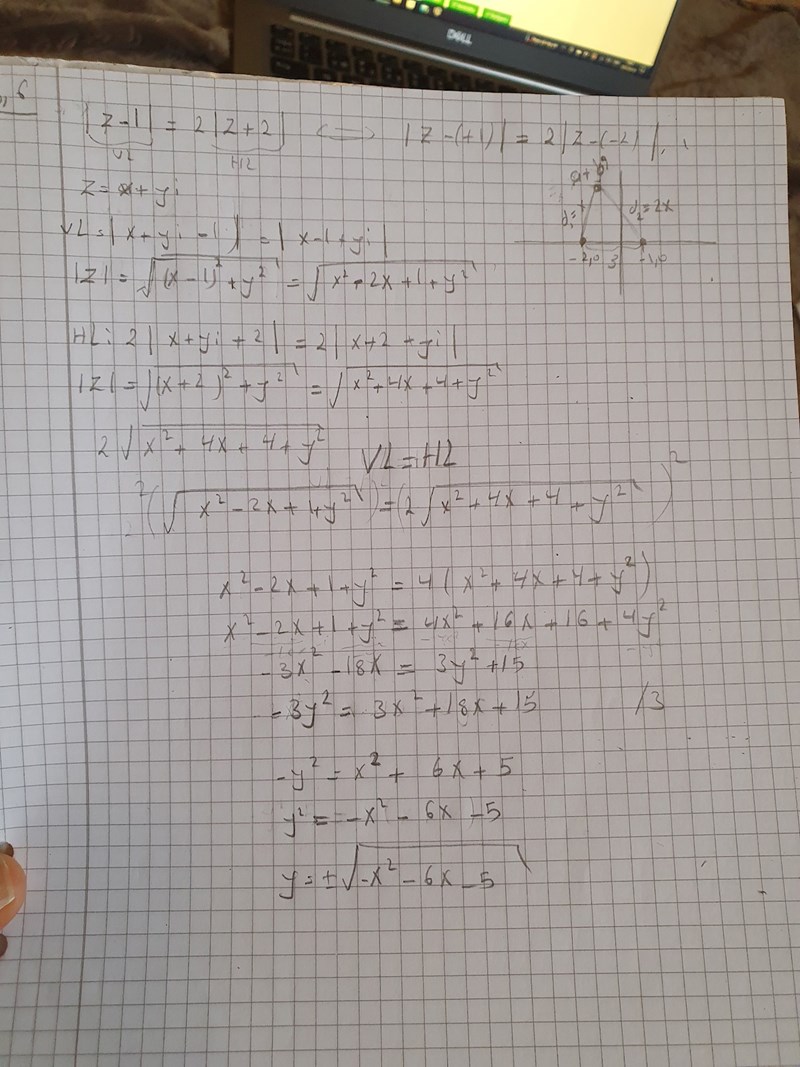 DELL
6
|z-1| = 2|z+2| ⟺ |z-(+1)| = 2|z-(-2)|
VL HL
z = x + yi
d₂=2x
-2,0 3 -1,0
VL = |x+yi-1| = |x-1+yi|
|z| = √((x-1)²+y²) = √(x²-2x+1+y²)
HL: 2|x+yi+2| = 2|x+2+yi|
|z| = √((x+2)²+y²) = √(x²+4x+4+y²)
2√(x²+4x+4+y²) VL=HL
²(√(x²-2x+1+y²)) = (2√(x²+4x+4+y²))²
x²-2x+1+y² = 4(x²+4x+4+y²)
x²-2x+1+y² = 4x²+16x+16+4y²
-3x²-18x = 3y²+15
-3y² = 3x²+18x+15 /3
-y² = x²+6x+5
y² = -x²-6x-5
y = ±√(-x²-6x-5)